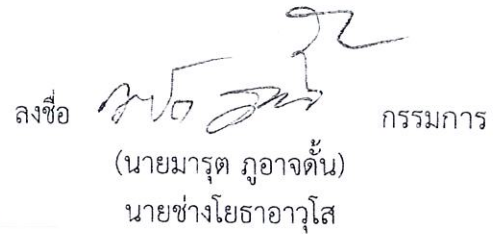 ลงชื่อ กรรมการ
(นายมารุต ภูอาจดั้น)
นายช่างโยธาอาวุโส